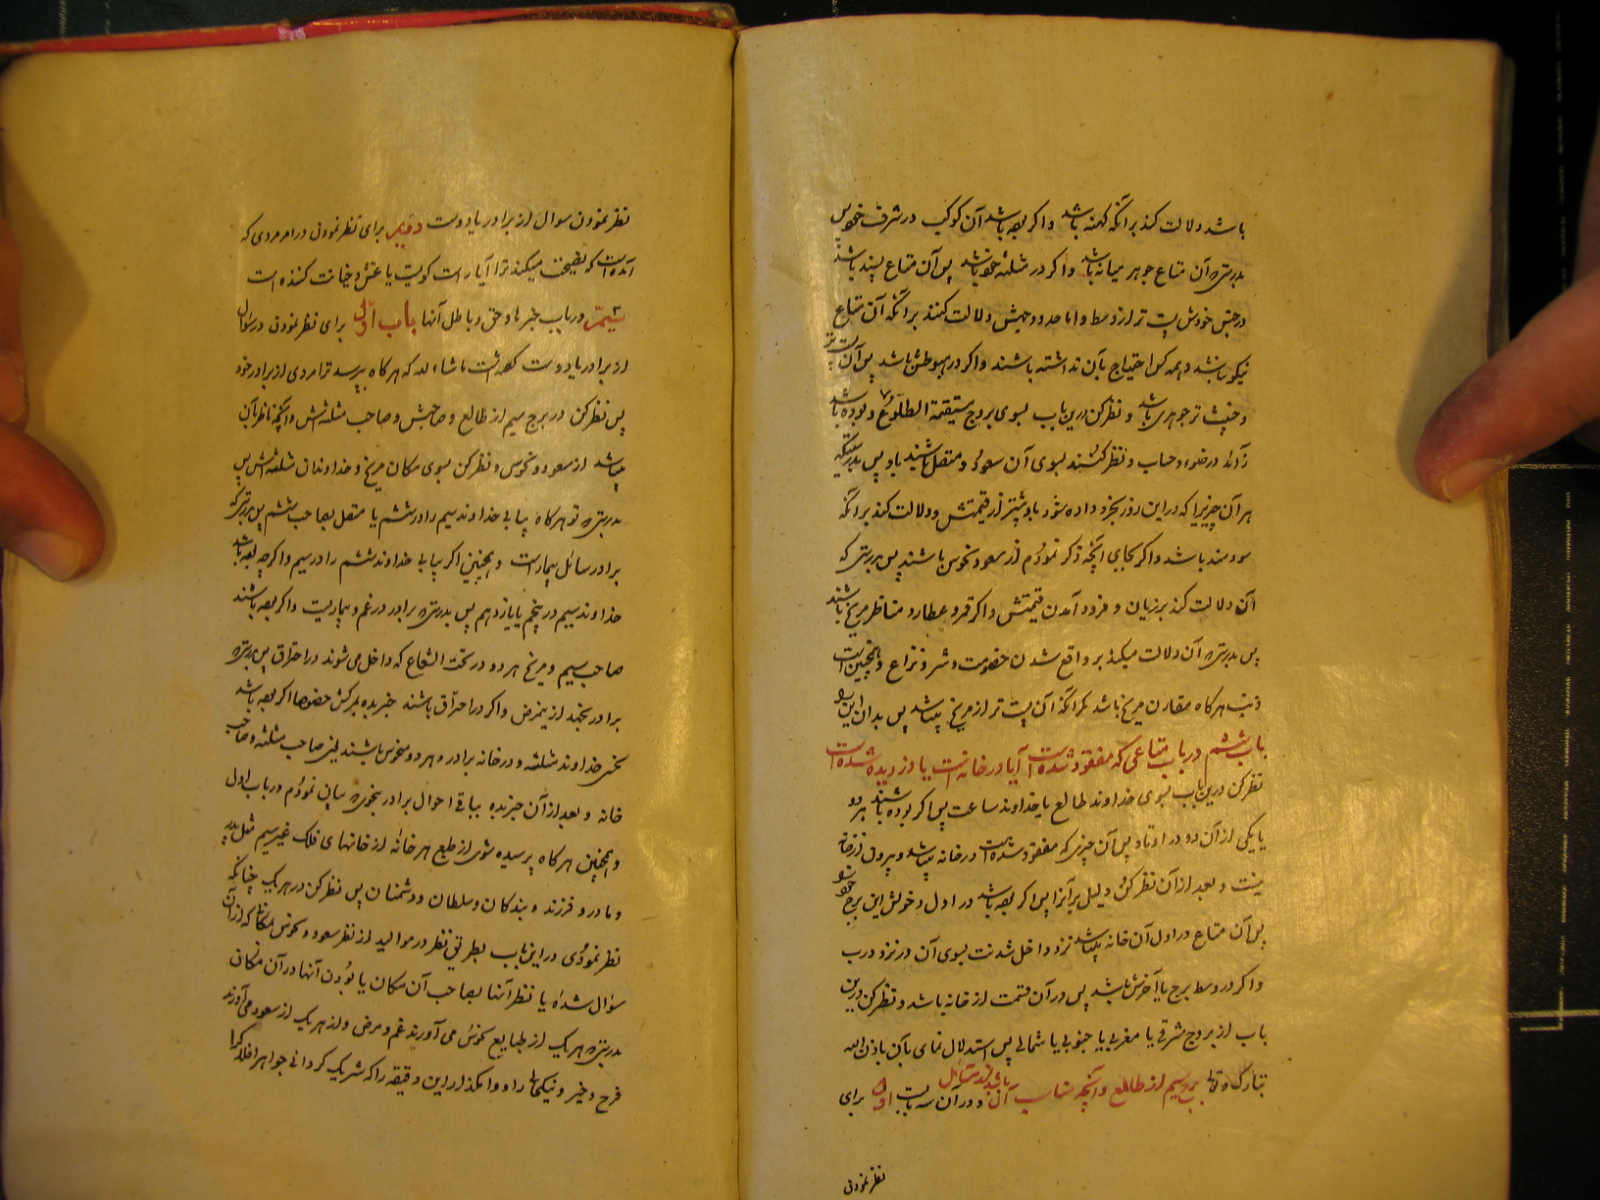 باشد دلالت کند بر آنکه کهنه باشد و اکر بوده باشد آن کوکب در شرف خود پس
بدرستیکه آن متاع جوهر بیمانه باشد و اکر در مثلثه خود باشد پس آن متاع پسند باشد
در جنس خودش پست تر از وسط و اما حدود و جهش دلالت کنند بر آنکه آن متاع
نیکو نباشد و همه کس احتیاج بآن نداشته باشند و اکر در هبوطش باشد پس آن پست تر
و خبیث تر جوهری باشد و نظر کن درین باب بسوی بروج مستقیمة الطلوع و بوده باشد
زائد در ضوء و حساب و نظر کنند بسوی آن سعود و متصل باشند باو پس بدرستیکه
هر آن چیزیرا که در این روز بخرد داده شود باو بیشتر از قیمتش و دلالت کند بر آنکه
سودمند باشد و اکر بجای آنچه ذکر نمودم از سعود نحوس باشند پس بدرستی که
آن دلالت کند بر زیان و فرود آمدن قیمتش و اکر قمر و عطارد مناظر مریخ باشند
پس بدرستیکه آن دلالت میکند بر واقع شدن خصومت و شر و نزاع و همچنین است
ذنب هرکاه مقارن مریخ باشد مکر آنکه آن پست تر از مریخ میباشد پس بدان این را
باب ششم در باب متاعی که مفقود شده است آیا در خانه است یا دزدیده شده است
نظر کن درین باب بسوی خداوند طالع یا خداوند ساعت پس اکر بوده باشند هر دو
یا یکی از آن دو در اوتاد پس آن چیزی که مفقود شده است در خانه میباشد و بیرون از خانه
نیست و بعد از آن نظر کن دلیل بر آنرا پس اکر بوده باشد در اول دخولش این برج خود
پس آن متاع در اول آن خانه میباشد نزد داخل شدنت بسوی آن در نزد درب
و اکر در وسط برج یا آخرش باشد پس در آن قسمت از خانه باشد و نظر کن درین
باب از بروج مشرقی یا مغربی یا جنوبی یا شمالی پس استدلال نمای بآن باذن الله
تبارک و تعالی برج سیم از طالع و آنچه مناسب آن باشد از مسائل و در آن سه بابست اول برای
نظر نمودن
نظر نمودن سوال از برادر یا دوست دویم برای نظر نمودن در امر مردی که
آمده است که نصیحت میکند ترا آیا راست کویست یا غش و خیانت کننده است
سیم در باب خبرها و حق و باطل آنها باب اول برای نظر نمودن در سوال
از برادر یا دوست کفته است ما شاء الله که هرکاه بپرسد ترا مردی از برادر خود
پس نظر کن در برج سیم از طالع و صاحبش و صاحب مثلثه اش و آنچه ناظر بآن
میباشد از سعود و نحوس و نظر کن بسوی مکان مریخ و خداوندان مثلثه اش پس
بدرستیکه تو هرکاه بیابی خداوند سیم را در ششم یا متصل بصاحب ششم پس بدرستیکه
برادر سائل بیمار است و همچنین اکر بیابی خداوند ششم را در سیم و اکر چه بوده باشد
خداوند سیم در پنجم یا یازدهم پس بدرستیکه برادر در غم و بیماریست و اکر بوده باشند
صاحب سیم و مریخ هر دو در تحت الشعاع که داخل می شوند در احتراق پس بدرستیکه
برادر نجهد از این مرض و اکر در احتراق باشند خبر بده بمرکش خصوصا اکر بوده باشد
نحس خداوند مثلثه و در خانه برادر و هر دو منحوس باشند یعنی صاحب مثلثه و صاحب
خانه و بعد از آن خبر بده بباقی احوال برادر بنحوی که بیان نمودم در باب اول
و همچنین هرکاه پرسیده شوی از طبع هر خانه از خانهای فلک غیر سیم مثل پدر
و مادر و فرزند و بندکان و سلطان و دشمنان پس نظر کن در هر یک چنانکه
نظر نمودی در این باب بطریق نظر در موالید از نظر سعود و نحوس مکانها که از آن
سوال شده یا نظر آنها بصاحب آن مکان یا بودن آنها در آن مکان
بدرستیکه هر یک از طبایع نحوس می آورند غم و مرض و از هر یک از سعود می آورند
فرح و خیر و نیکیها را و وامکذار این دقیقه را که شریک کردانی جواهر افلاک را